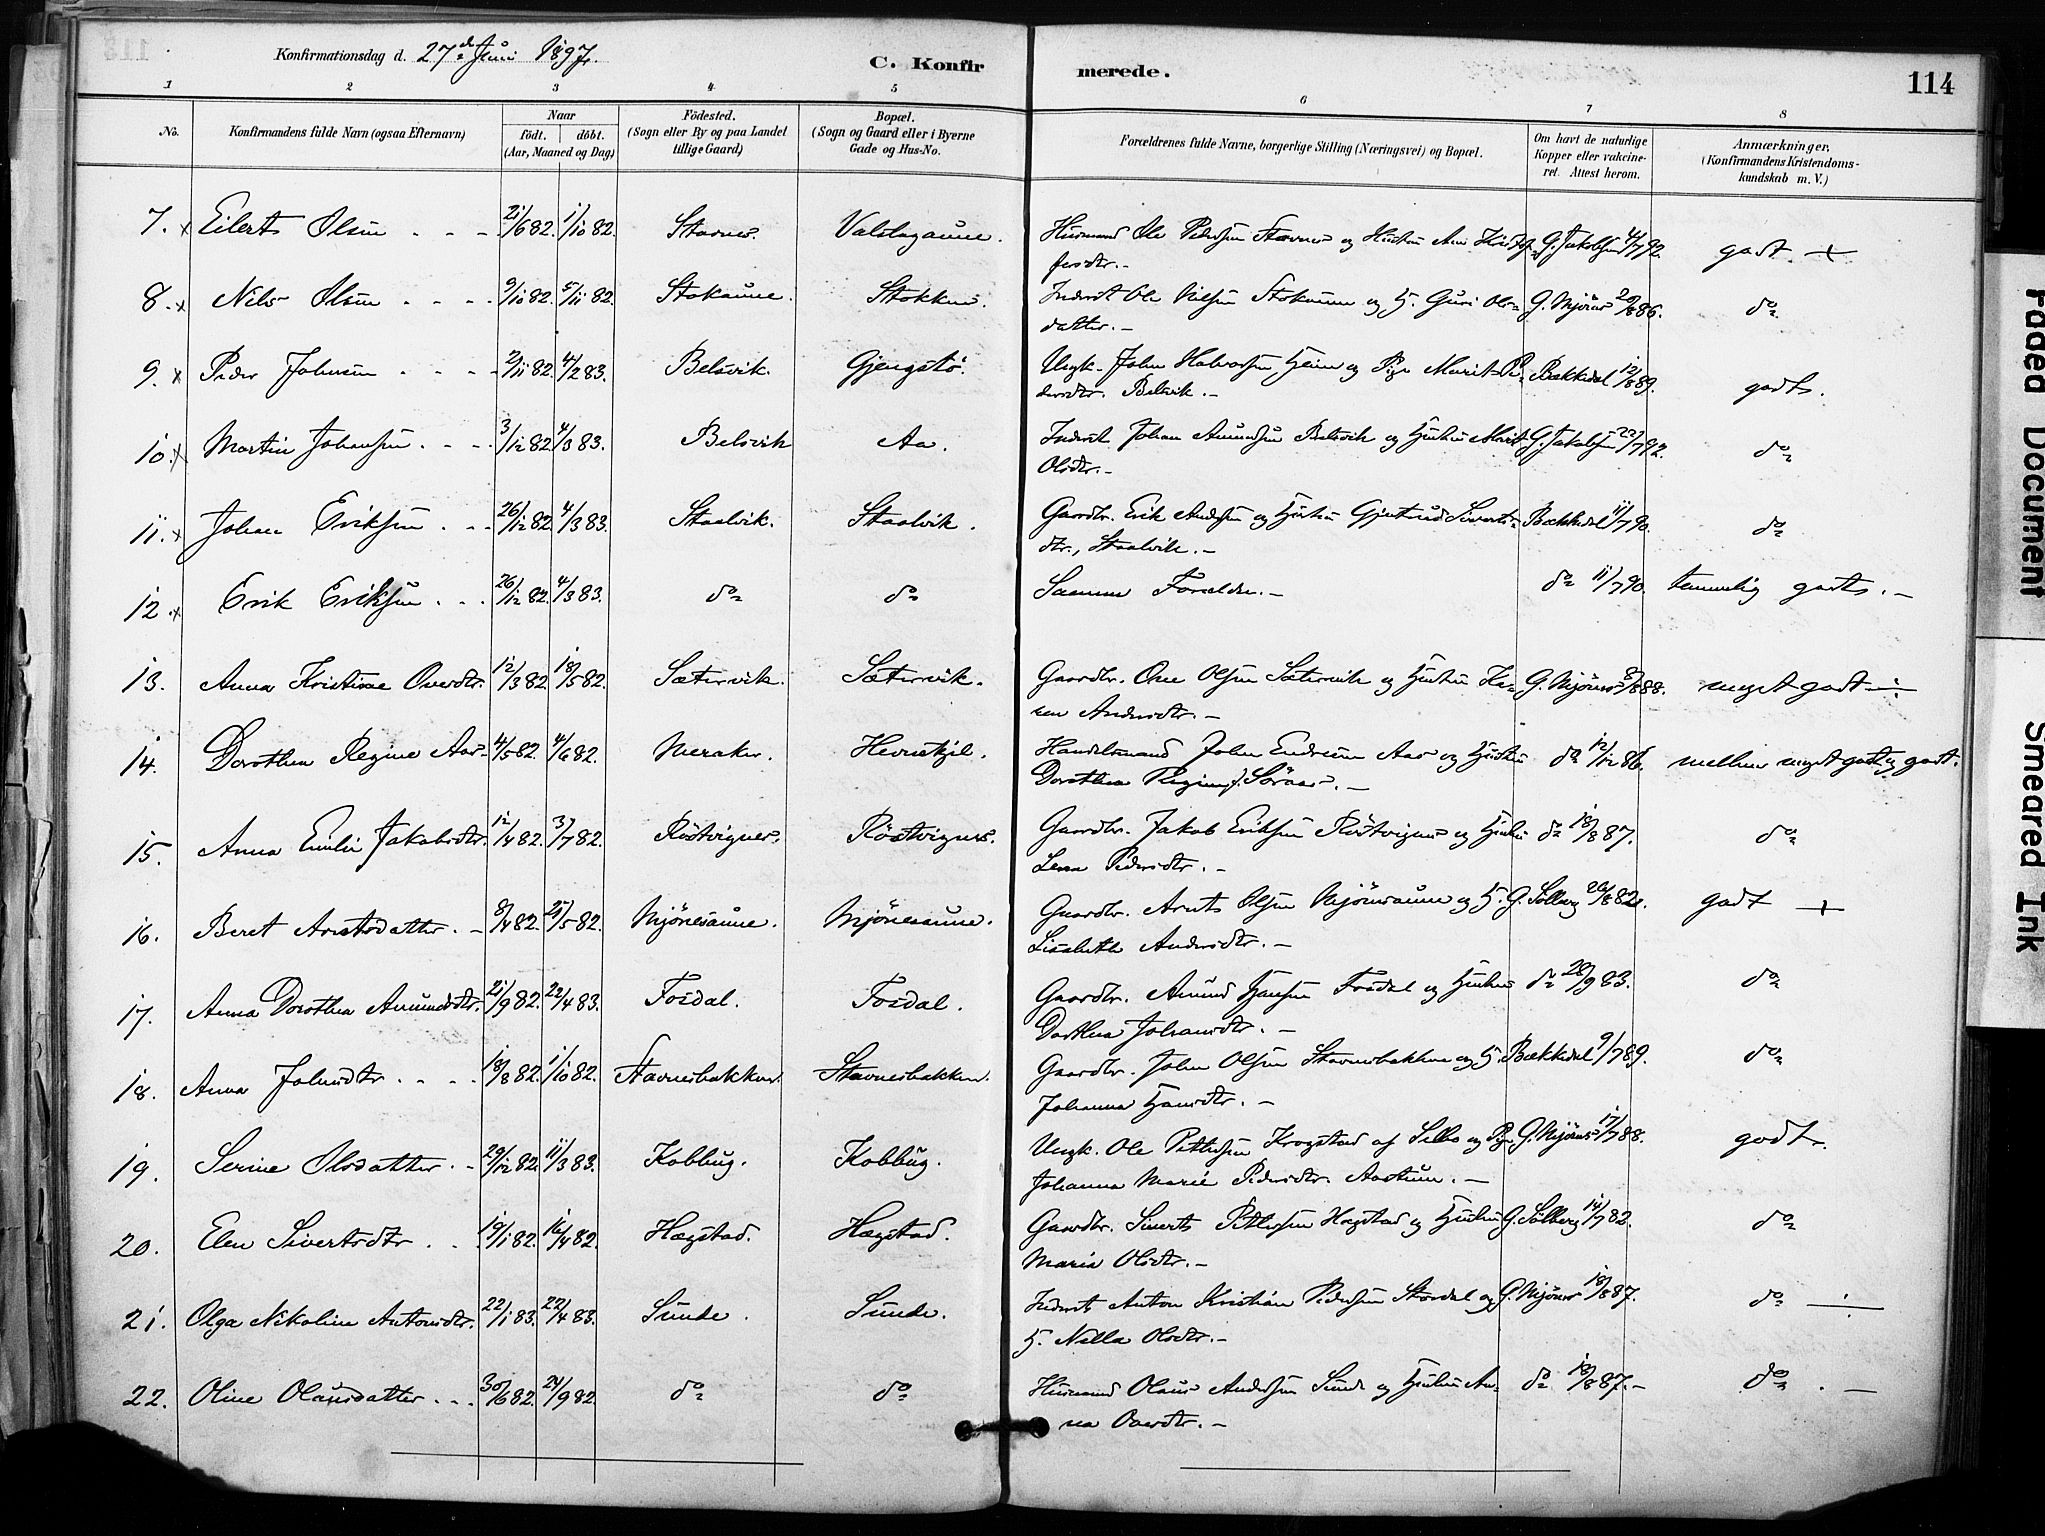 Konfirmationsdag d. 27de Juni 1897. C. Konfirmerede. 114
1 2 3 4 5 6 7 8
No. Konfirmandens fulde Navn (ogsaa Efternavn) Naar födt. döbt. (Aar, Maaned og Dag) Födested. (Sogn eller By og paa Landet tillige Gaard) Bopæl. (Sogn og Gaard eller i Byerne Gade og Hus-No. Forældrenes fulde Navne, borgerlige Stilling (Næringsvei) og Bopæl. Om havt de naturlige Kopper eller vakcineret. Attest herom. Anmærkninger. (Konfirmandens Kristendomskundskab m. V.)
7. x Eilert Olsen 21/6 82. 1/10 82. Stavnes. Valslagaune. Husmand Ole Pedersen Stavnes og Hustru Ane Kristof- G. Jakobsen 4/7 92. godt. +
fersdtr. —
8. x Nils Olsen 9/10 82. 5/11 82. Stokaune. Stokken. Inderst Ole Nilsen Stokaune og H. Guri Ols- G. Mjönes 20/8 86. do
datter. —
9. x Peder Johnsen 2/11 82. 4/2 83. Belsvik. Gjengstö. Ungk. John Halvorsen Heim og Pige Marit Pe- Bækkedal 12/8 89. godt.
dersdtr. Belsvik. —
10. x Martin Johansen 3/12 82. 4/3 83. Belsvik Aa. Inderst Johan Amundsen Belsvik og Hustru Marit G. Jakobsen 22/7 92. do
Olsdtr. —
11. x Johan Eriksen 26/12 82. 4/3 83. Staalvik. Staalvik. Gaardbr. Erik Andersen og Hustru Gjertrud Siverts- Bækkedal 11/7 90. do
dtr., Staalvik. —
12. x Erik Eriksen 26/12 82. 4/3 83. do do Samme Forældre. — do 11/7 90. temmelig godt. —
13. Anna Kristine Oversdtr. 12/3 82. 18/5 82. Sætervik. Sætervik. Gaardbr. Ove Olsen Sætervik og Hustru Ka- G. Mjönes 8/8 88. meget godt ÷
ren Andersdtr. —
14. Dorothea Regine Aas 4/5 82. 4/6 82. Meraker. Hevnskjel. Handelsmand John Endresen Aas og Hustru do 12/12 86. mellem meget godt og godt.
Dorothea Regine f. Söraas. —
15. Anna Emilie Jakobsdtr. 12/4 82. 3/7 82. Röstvignes. Röstvignes. Gaardbr. Jakob Eriksen Röstvignes og Hustru do 18/8 87. do
Lena Pedersdtr. —
16. Beret Arntsdatter 8/4 82. 25/5 82. Mjönesaune. Mjönesaune. Gaardbr. Arnt Olsen Mjönesaune og H. G. Solberg 20/8 82. godt +
Lisabeth Andersdtr. —
17. Anna Dorothea Amundsdtr. 21/9 82. 22/4 83. Fosdal. Fosdal. Gaardbr. Amund Hansen Fosdal og Hustru do 28/9 83. do
Dorthea Johansdtr. —
18. Anna Johnsdtr. 18/8 82. 1/10 82. Stavnesbakken. Stavnesbakken. Gaardbr. John Olsen Stavnesbakken og H. Bækkedal 9/7 89. do
Johanna Hansdtr. —
19. Serine Olsdatter 29/12 82. 11/3 83. Kobbug. Kobbug. Ungk. Ole Pettersen Krogstad af Selbo og Pige G. Mjönes 17/7 88. godt.
Johanna Marie Pedersdtr. Aastum. —
20. Elen Sivertsdtr 19/1 82. 16/4 82. Hægstad. Hægstad. Gaardbr. Sivert Pettersen Hægstad og Hustru G. Solberg 14/7 82. do
Maria Olsdtr. —
21. Olga Nikoline Antonsdtr. 22/1 83. 22/4 83. Sunde. Sunde. Inderst Anton Kristian Pedersen Stordal og G. Mjönes 18/8 87. do ÷
H. Nella Olsdtr. —
22. Oline Olausdatter 30/6 82. 24/9 82. do do Husmand Olaus Andersen Sunde og Hustru An- do 18/8 87. — do . —
na Oversdtr. —
Faded Document
Smeared Ink